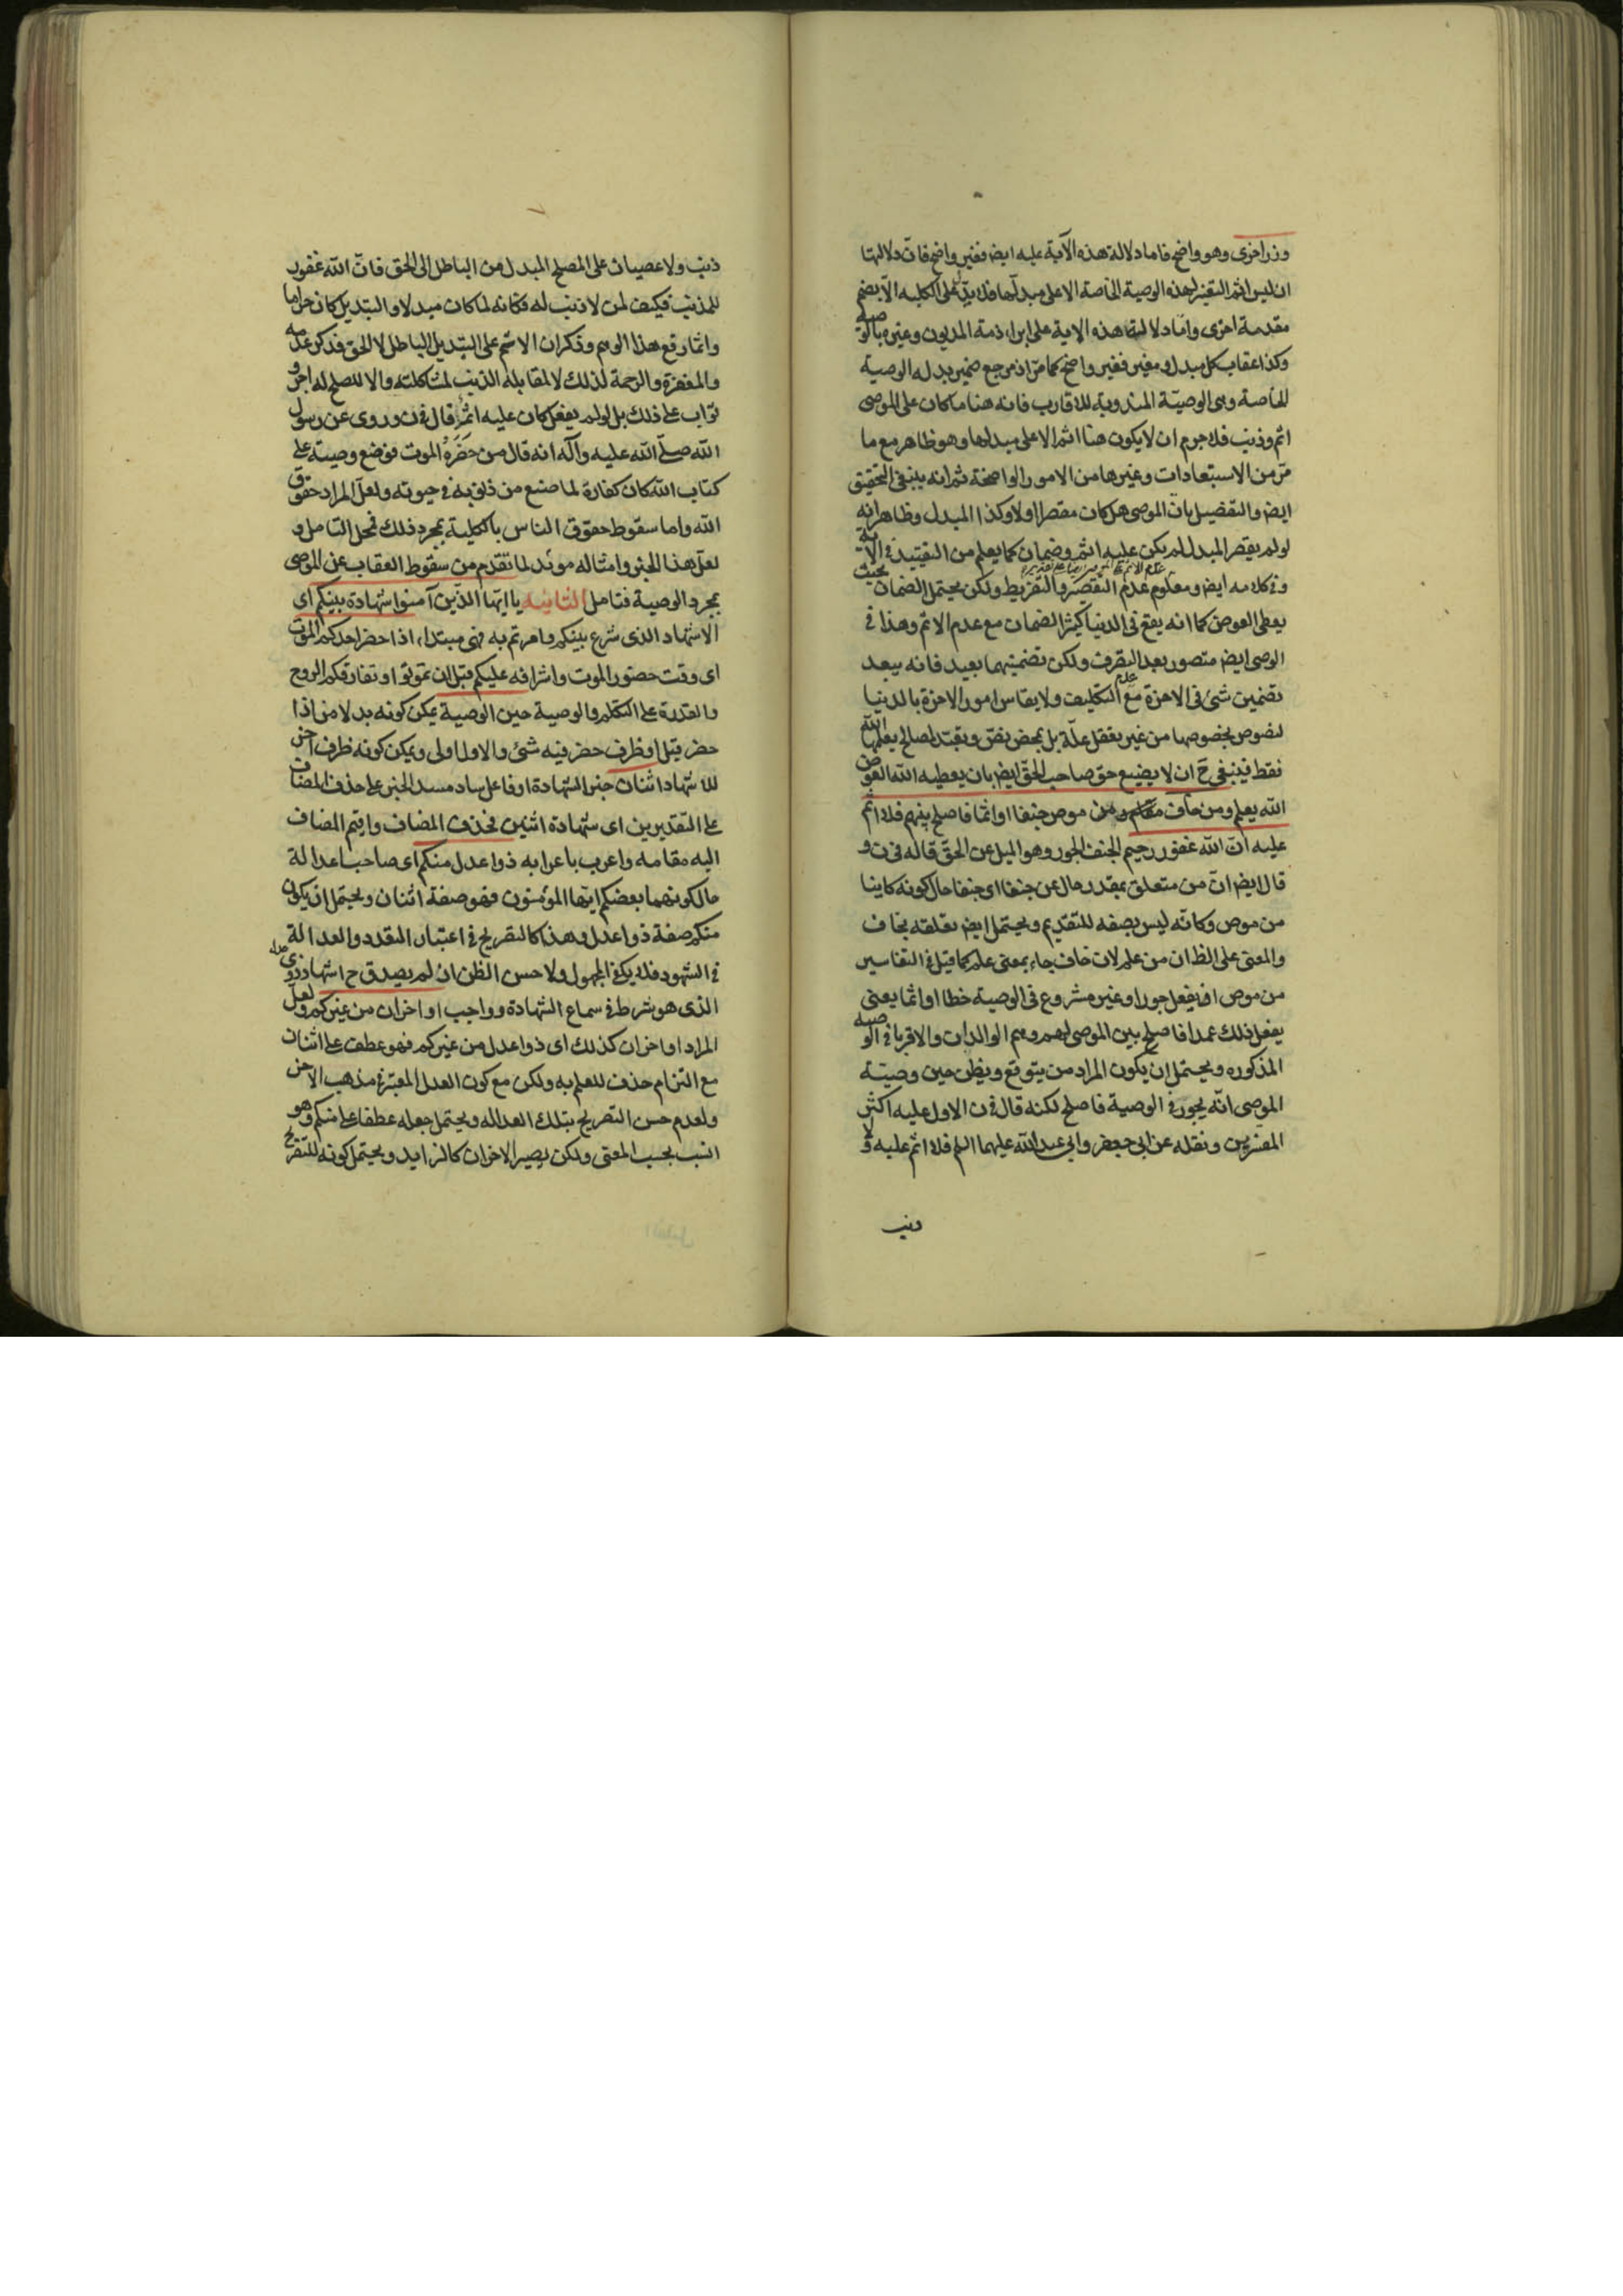 وزر اخرى وهو واضح فاما دلالة هذه الآية عليه ايض فغير واضح فانّ دلالتها
ان ليس اثم التغير لهذه الوصية الخاصة الا على مبدلها فلا يدلّ على الكلية الا بضم
مقدمة اخرى وامّا دلالتها هذه الاية على ابراء ذمة المديون وغيره بالوصية
وكذا عقاب كل مبدل ومغير فغير واضح كما مرّ ان مرجع ضمير بدله الوصية
الخاصة وهى الوصيّة المندوبة للاقارب فانه هنا ما كان على الموصى
اثم وذنب فلا جرم ان لا يكون هنا اثم الا على مبدلها وهو ظاهر مع ما
مرّ من الاستبعادات وغيرها من الامور الواضحة ثم انه ينبغى التحقيق
ايض والتفضيل بانّ الموصى هل كان مقصرا اولا وكذا المبدل وظاهر انه
لو لم يقصر المبدل لم يكن عليه اثم وضمان كما يعلم من التقييد فى الآية
وفى كلامه ايض ومعلوم عدم التقصير والتفريط ولكن يحتمل الضمان بحيث
يعطى العوض كما انه يقع فى الدنيا كثيرا لضمان مع عدم الاثم وهذا فى
الوصى ايض متصور بعد التصرف ولكن تضمينهما بعيد فانه يبعد
تضمين شئ فى الاخرة مع عدم التكليف ولا يقاس امور الاخرة بالدنيا
لنصوص بخصوصها من غير تعقل علّة بل بمحض نصّ وتعبّد لمصالح يعلمها الله
فقط فينبغى ح ان لا يضيع حق صاحب الحق ايض بان يعطيه الله العوض
الله يعلم ومن خاف من موص جنفا او اثما فاصلح بينهم فلا اثم
عليه انّ الله غفور رحيم الجنف الجور وهو الميل عن الحقّ قاله فى ن و
قال ايض انّ من متعلق بمقدر حال عن جنفا اى جنفا حال كونه كاينا
من موص وكانّه ليس بصفه للتقديم ويحتمل ايض تعلقه بخاف
والمعنى على الظ ان من علم لان خاف جاء بمعنى علم كما قيل فى التفاسير
من موص ان يفعل جورا وغير مشروع فى الوصية خطا او اثما يعنى
يفعل ذلك عمدا فاصلح بين الموصى لهم وهم الوالدان والاقربا فى الوصية
المذكوره ويحتمل ان يكون المراد من يتوقع ويظن حين وصيّة
الموصى انّه يجور فى الوصية فاصلح لكنه قال فى ن الاول عليه اكثر
المفسرين ونقله عن ابى جعفر وابى عبد الله عليهما السلم فلا اثم عليه ولا
ذنب
ذنب ولا عصيان على المصلح المبدل من الباطل الى الحق فانّ الله غفور
للمذنب فكيف لمن لا ذنب له فكانه لما كان مبدلا والتبديل كان حراما
وانما رفع هذا الوهم وذكر ان الاثم على التبديل الباطل لا الحق فذكر عدمه
والمغفرة والرحمة لذلك لا لمقابلة الذنب لمشاكلته والا للمصلح له اجر و
ثواب على ذلك بل لو لم يفعل كان عليه اثم قال فى ن وروى عن رسول
الله صلّى الله عليه وآله انه قال من حَضَرَهُ الموت فوضع وصيته على
كتاب الله كان كفارة لما صنع من ذنبه فى حيوته ولعلّ المراد حقوق
الله واما سقوط حقوق الناس بالكلية بمجرد ذلك فمحل التامل و
لعلّ هذا الخبر وامثاله مويد لما تقدم من سقوط العقاب عن الموصى
بمجرد الوصية فتامل الثانية يا ايّها الذّين آمنوا شهادة بينكم اى
الاشهاد الذى شرع بينكم وامرتم به فهى مبتداء اذا حضر احدكم الموت
اى وقت حضور الموت واشرافه عليكم قبل ان تموتوا وتفارقكم الروح
والقدرة على التكلم والوصية حين الوصية يمكن كونه بدلا من اذا
حضر قبل او ظرف حضر فيه شئ والاول اولى ويمكن كونه ظرف آخر
للاشهاد اثنان خبر الشهادة او فاعل ساد مسد الخبر على حذف المضاف
على التقديرين اى شهادة اثنين فحذف المضاف واقيم المضاف
اليه مقامه واعرب باعرابه ذوا عدل منكم اى صاحبا عدالة
حال كونهما بعضكم ايّها المؤمنون فهو صفة اثنان ويحتمل ان يكون
منكم صفة ذوا عدل وهذا كالتصريح فى اعتبار التعدد والعدالة
فى الشهود فلا يكفى المجهول ولا حسن الظن ان لم يصدق ح اشهاد ذوى عدل
الذى هو شرط فى سماع الشهادة وواجب او اخران من غيركم ولعلّ
المراد او اخران كذلك اى ذوا عدل من غيركم فهو عطف على اثنان
مع التزام حذف للعلم به ولكن مع كون العدل المعتبر فى مذهب الاخر
ولعدم حسن التصريح بتلك العداله ويحتمل جعله عطفا على منكم وهو
انسب بحسب المعنى ولكن يصير الاخران كالزايد ويحتمل كونه للتصريح